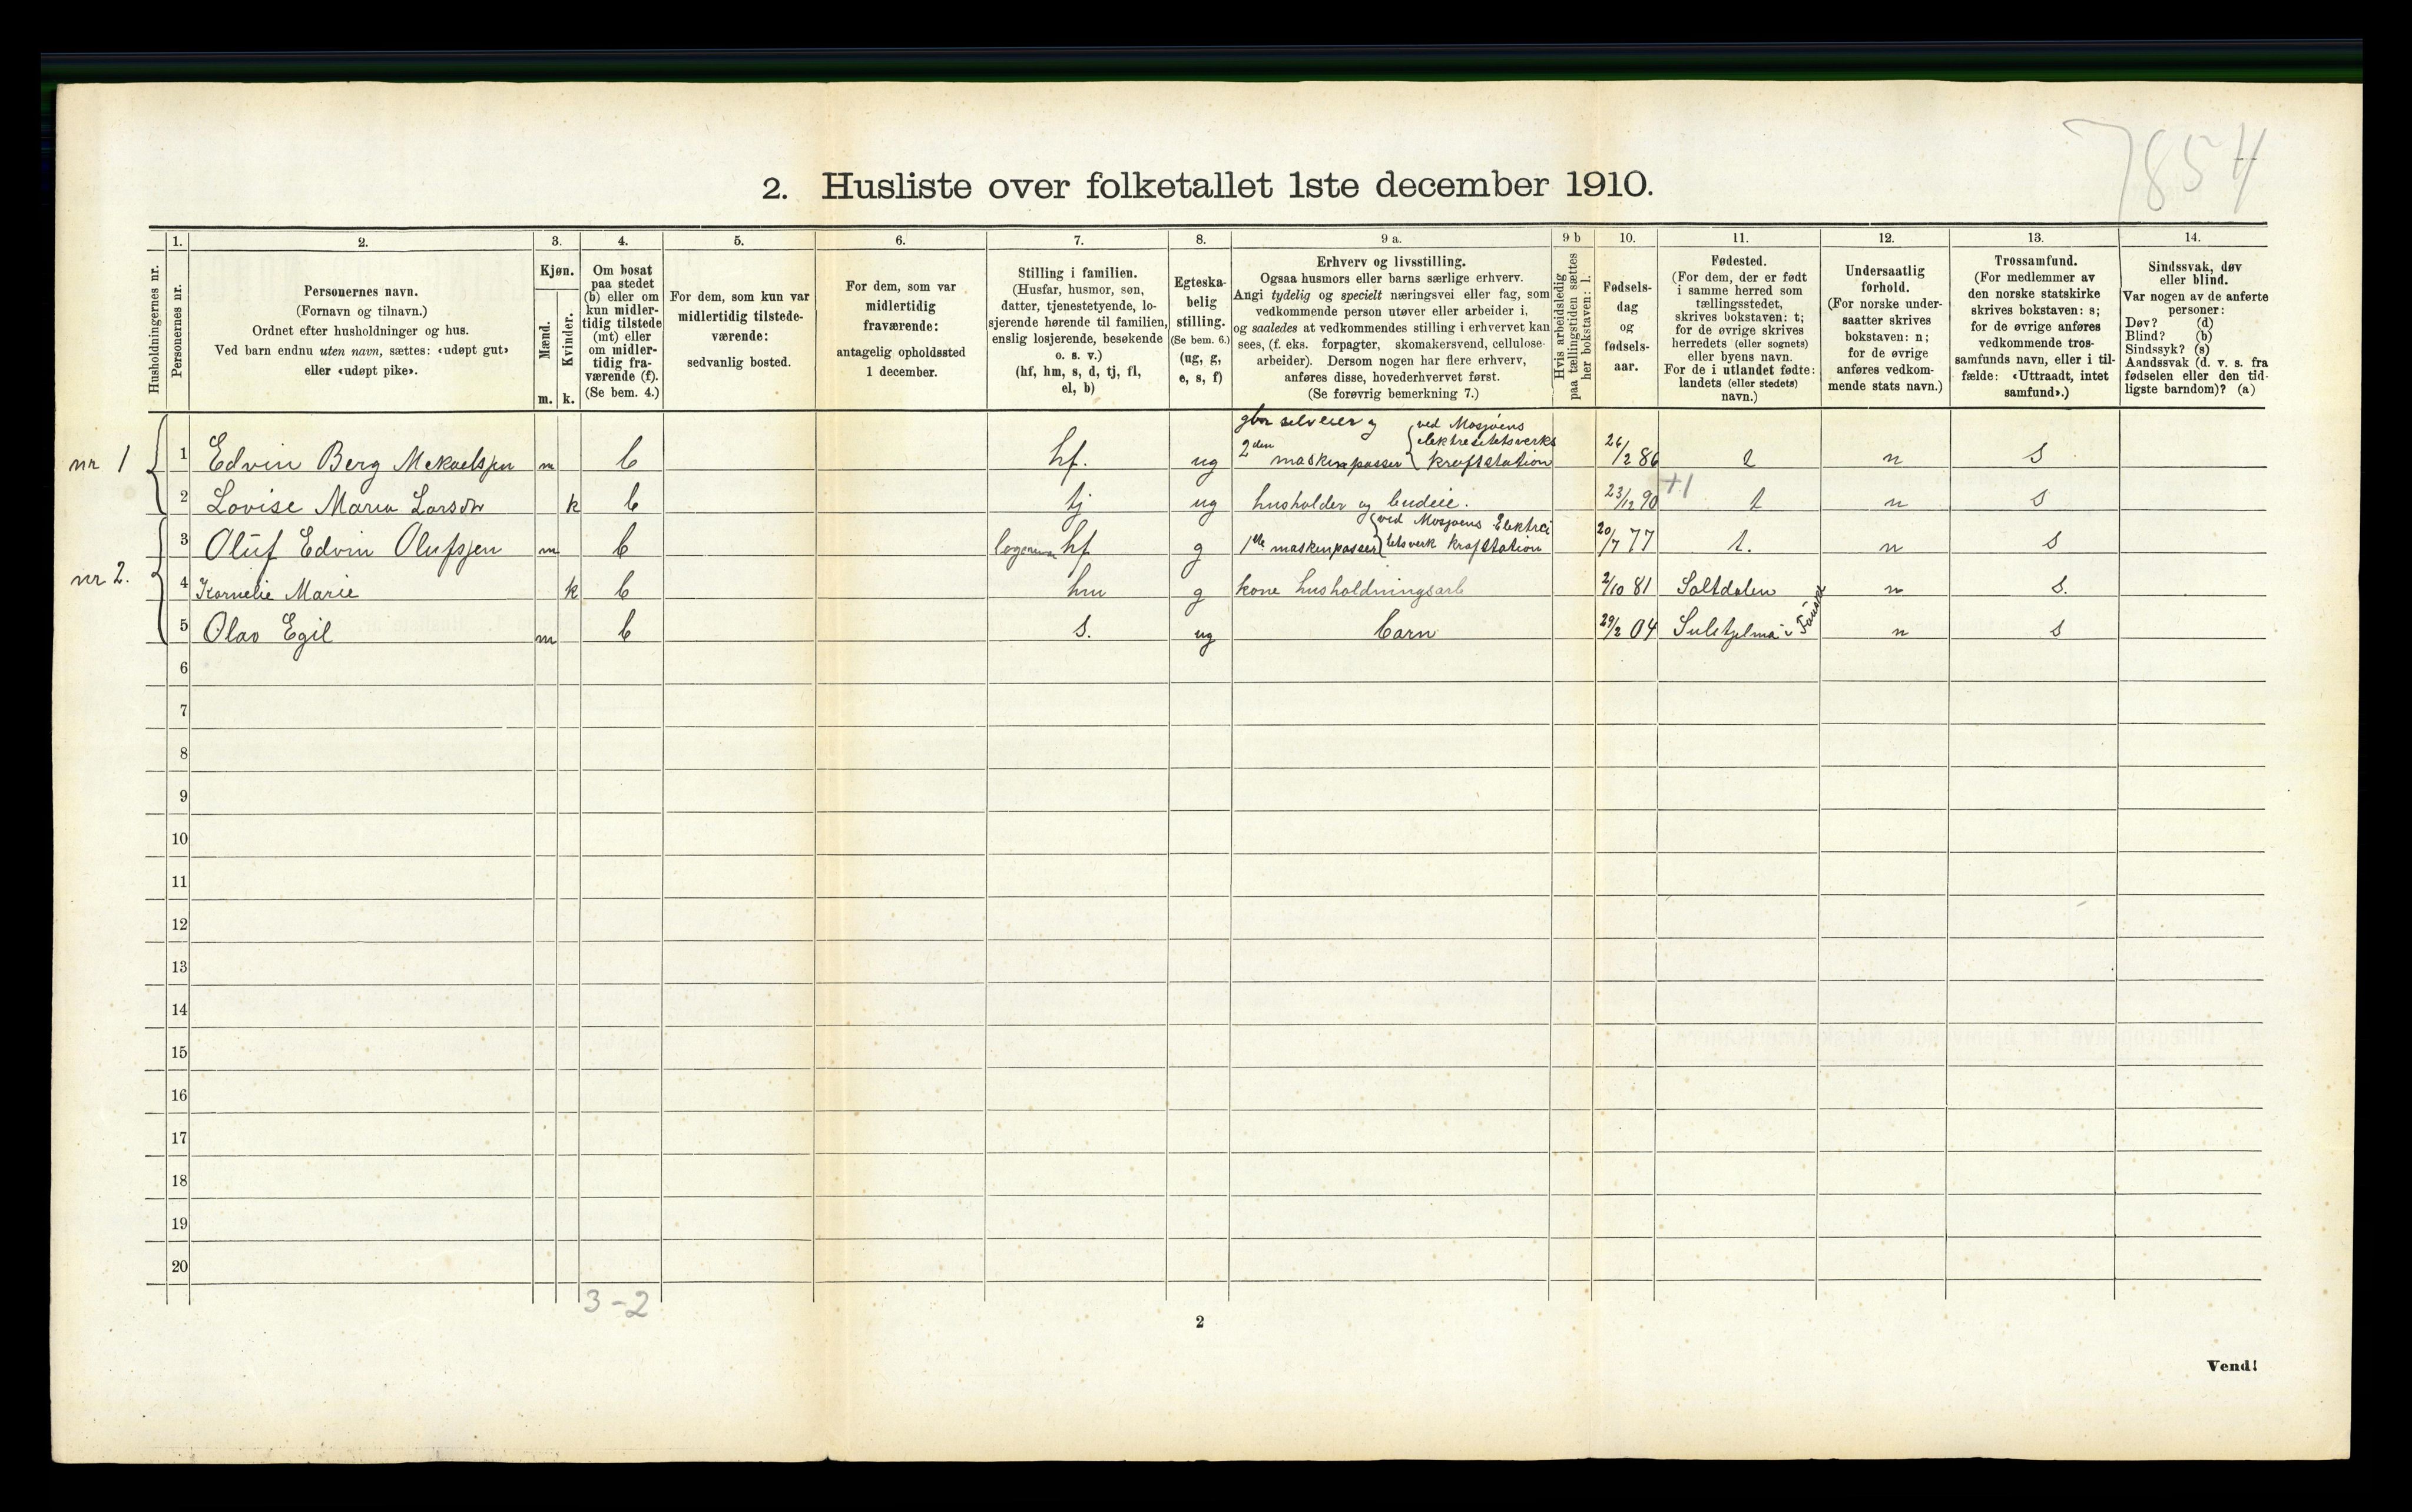 7854
2. Husliste over folketallet 1ste december 1910.
1. 2. 3. 4. 5. 6. 7. 8. 9 a. 9 b 10. 11. 12. 13. 14.
Husholdningernes nr.
Personernes nr.
Personernes navn.
(Fornavn og tilnavn.)
Ordnet efter husholdninger og hus.
Ved barn endnu uten navn, sættes: «udøpt gut»
eller «udøpt pike».
Kjøn.
Mænd.
Kvinder.
m. k.
Om bosat
paa stedet
(b) eller om
kun midler-
tidig tilstede
(mt) eller
om midler-
tidig fra-
værende (f).
(Se bem. 4.)
For dem, som kun var
midlertidig tilstede-
værende:
sedvanlig bosted.
For dem, som var
midlertidig
fraværende:
antagelig opholdssted
1 december.
Stilling i familien.
(Husfar, husmor, søn,
datter, tjenestetyende, lo-
sjerende hørende til familien,
enslig losjerende, besøkende
o. s. v.)
(hf, hm, s, d, tj, fl,
el, b)
Egteska-
belig
stilling.
(Se bem. 6.)
(ug, g,
e, s, f)
Erhverv og livsstilling.
Ogsaa husmors eller barns særlige erhverv.
Angi tydelig og specielt næringsvei eller fag, som
vedkommende person utøver eller arbeider i,
og saaledes at vedkommendes stilling i erhvervet kan
sees, (f. eks. forpagter, skomakersvend, cellulose-
arbeider). Dersom nogen har flere erhverv,
anføres disse, hovederhvervet først.
(Se forøvrig bemerkning 7.)
Hvis arbeidsledig
paa tællingstiden sættes
her bokstaven: l.
Fødsels-
dag
og
fødsels-
aar.
Fødested.
(For dem, der er født
i samme herred som
tællingsstedet,
skrives bokstaven: t;
for de øvrige skrives
herredets (eller sognets)
eller byens navn.
For de i utlandet fødte:
landets (eller stedets)
navn.)
Undersaatlig
forhold.
(For norske under-
saatter skrives
bokstaven: n;
for de øvrige
anføres vedkom-
mende stats navn.)
Trossamfund.
(For medlemmer av
den norske statskirke
skrives bokstaven: s;
for de øvrige anføres
vedkommende tros-
samfunds navn, eller i til-
fælde: «Uttraadt, intet
samfund».)
Sindssvak, døv
eller blind.
Var nogen av de anførte
personer:
Døv? (d)
Blind? (b)
Sindssyk? (s)
Aandssvak (d. v. s. fra
fødselen eller den tid-
ligste barndom)? (a)
gbr selveier og ved Mosjøens
elektresitetsverks
nr 1 1 Edvin Berg Mekaelsen m b hf. ug 2den maskinpasser kraftstation 26/2 86 t n s
2 Lovise Maria Larsdr k b tj ug husholder og budeie. 23/12 90 +1 t n s
ved Mosjøens Elektrci
3 Oluf Edvin Olufsen m b hf g 1ste maskinpasser tetsverk kraftstation 20/7 77 t. n s
nr 2. 4 Kornelie Marie k b hm g kone husholdningsarb 2/10 81 Saltdalen n s.
5 Olav Egil m b s. ug barn 29/2 04 Suletjelma i Fauske n s
6
7
8
9
10
11
12
13
14
15
16
17
18
19
20
3-2
2
Vend!